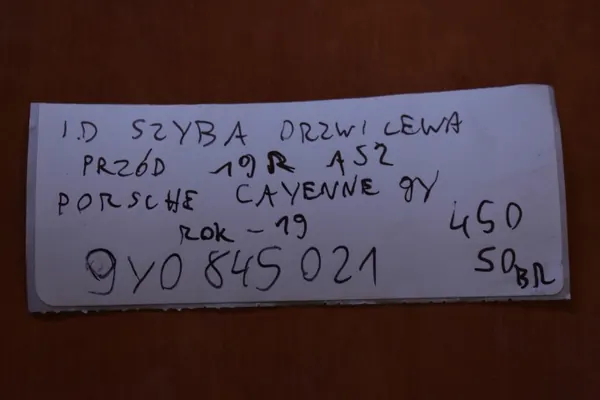 I.D SZYBA DRZWI LEWA
PRZÓD 19R AS2
PORSCHE CAYENNE 9Y
ROK - 19
450
9Y0 845 021
50 BR